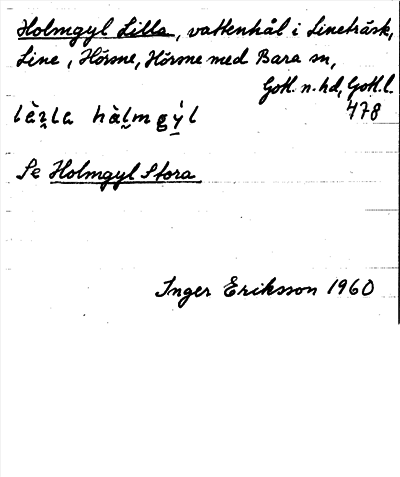 Holmgyl Lilla, vattenhål i Lineträsk,
Line, Hörsne, Hörsne med Bara sn,
Gotl. n. hd, Gotl. l.
478
Se Holmgyl Stora
Inger Eriksson 1960